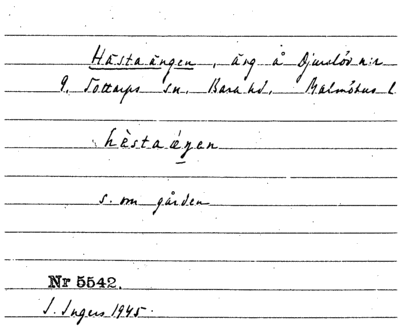 Hästaängen, äng å Djurslöv n:r
9, Tottarps sn, Bara hd, Malmöhus l.
hèstaéŋen
s. om gården
Nr 5542.
I. Ingers 1945.